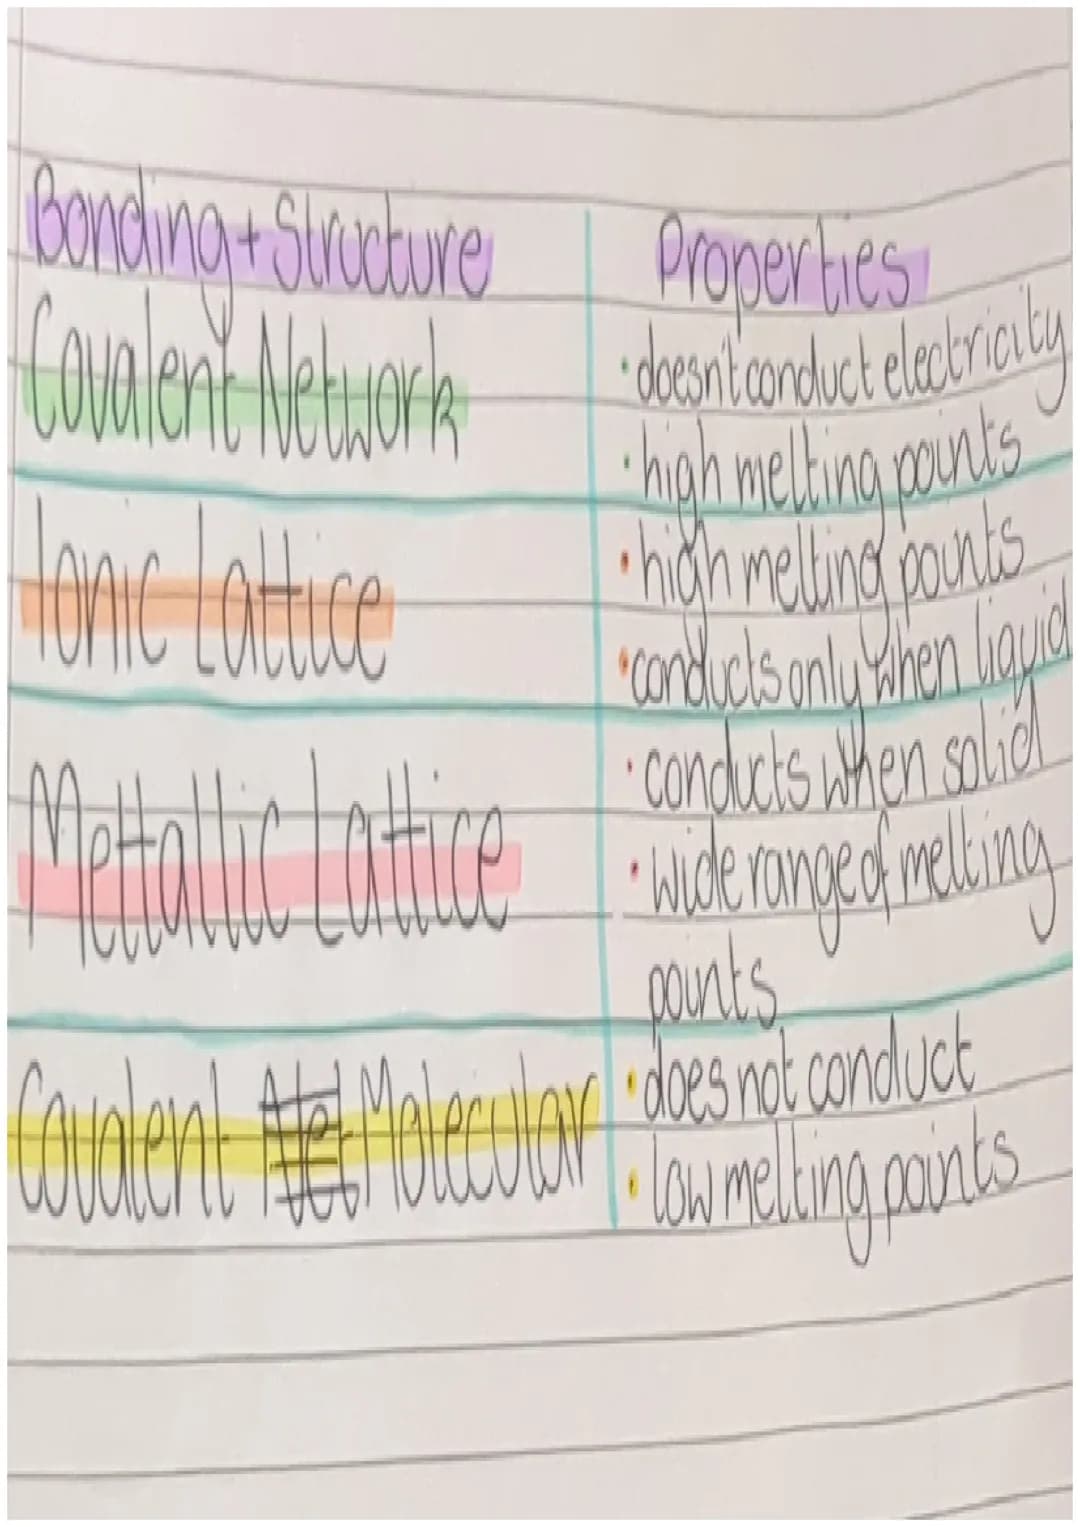 Bonding + Structure
Properties
Covalent Network
• doesn't conduct electricity
• high melting points
Ionic Lattice
• high melting points
• conducts only when liquid
Mettallic Lattice
• conducts when solid
• wide range of melting
points
Covalent Net Molecular
• does not conduct
• low melting points